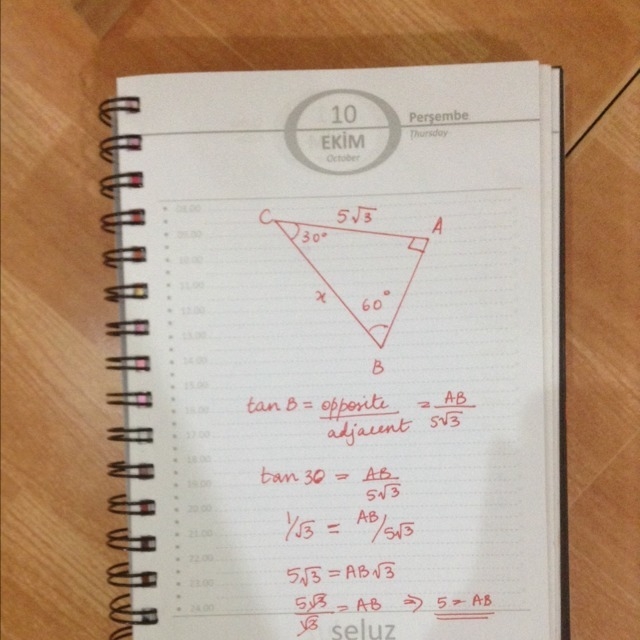 10
Perşembe
EKİM
Thursday
October
C 5√3 A
30°
x 60°
B
tan B = opposite/adjacent = AB/5√3
tan 30 = AB/5√3
1/√3 = AB/5√3
5√3 = AB√3
5√3/√3 = AB ⇒ 5 = AB
08.00
09.00
10.00
11.00
12.00
13.00
14.00
15.00
16.00
17.00
18.00
19.00
20.00
21.00
22.00
23.00
24.00
seluz